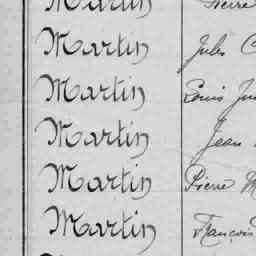 Martin Pierre
Martin Jules
Martin Louis
Martin Jean
Martin Pierre
Martin François